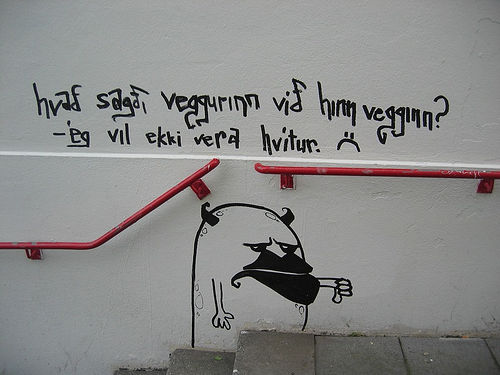 hvað sagði veggurinn við hinn vegginn?
- ég vil ekki vera hvítur. :(